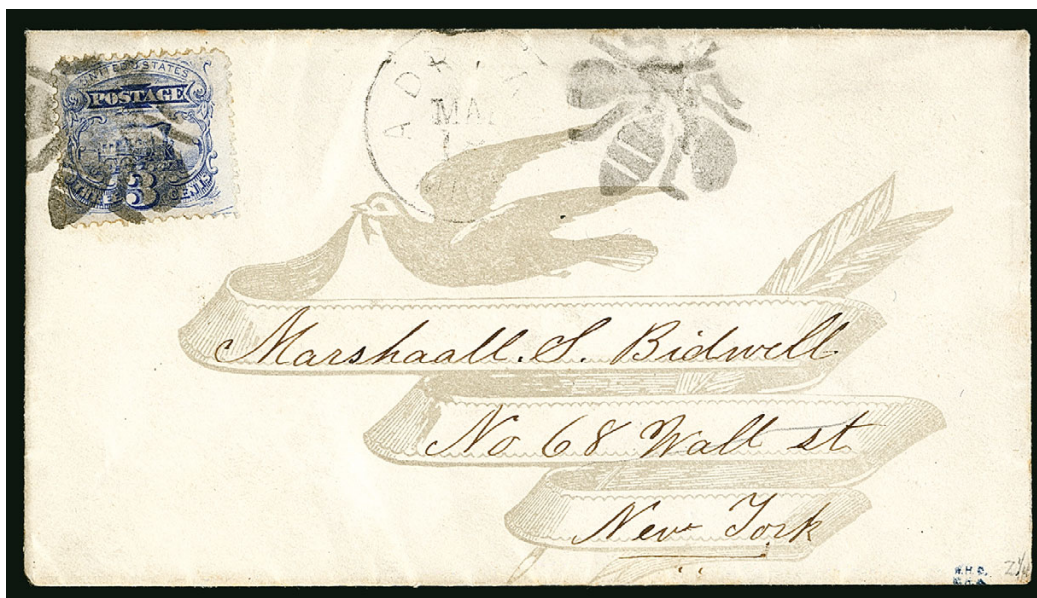 UNITED STATES
POSTAGE
THREE 3 CENTS
MA
Marshaall. S. Bidwell
No 68 Wallt st
New York